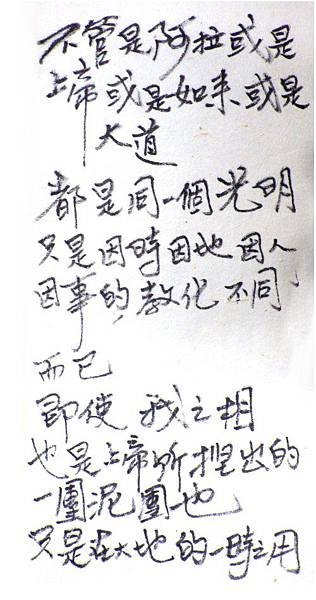 不管是阿拉或是
上帝或是如來或是
大道
都是同一個光明
只是因時因地因人
因事的教化不同
而已
即使我之相
也是上帝所捏出的
一團泥團也
只是在大地的一時之用